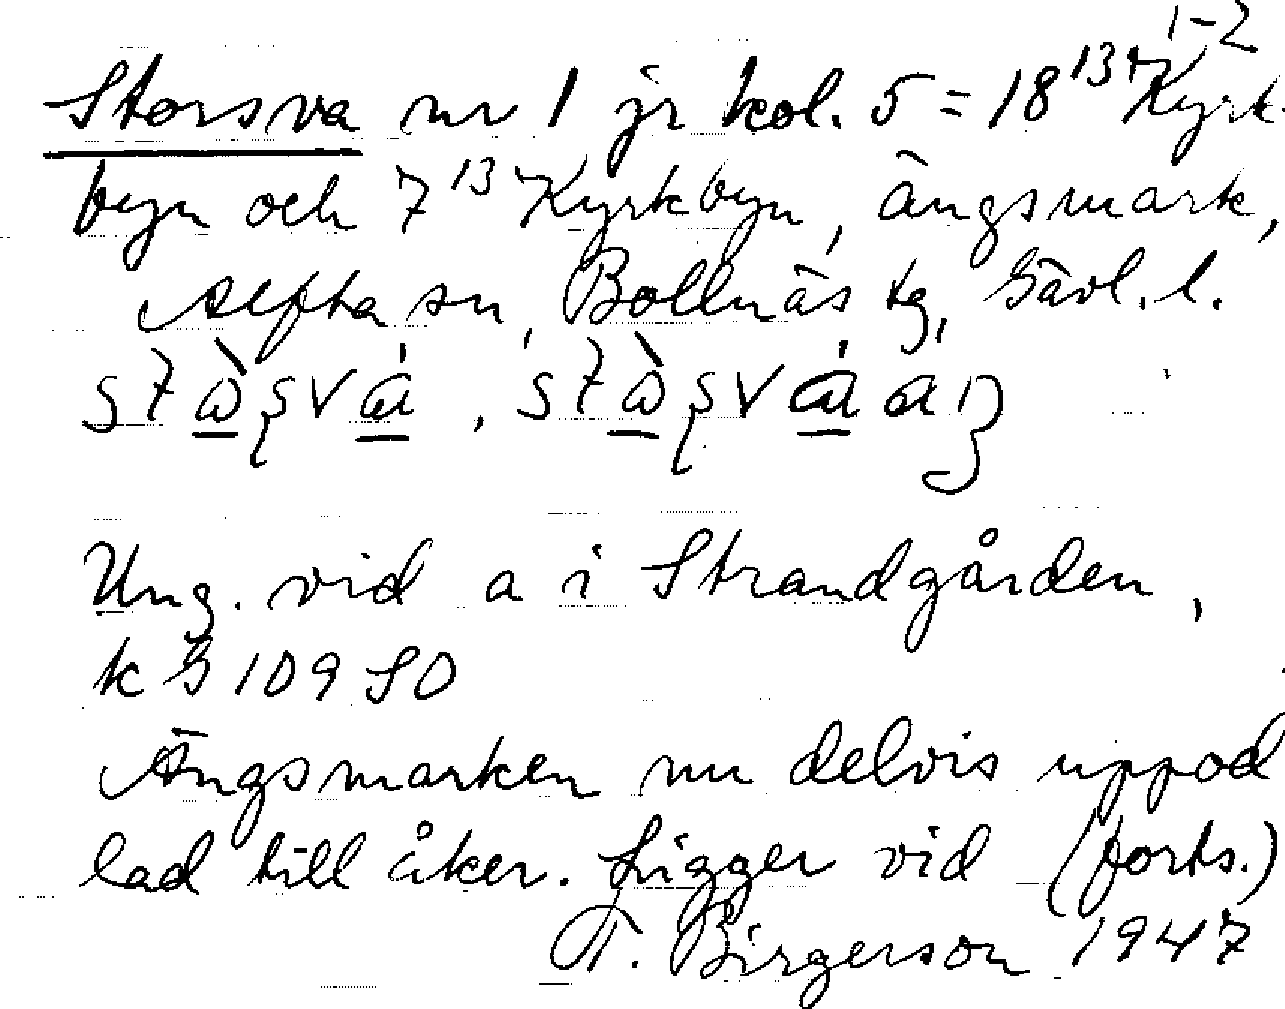 Storsva nr 1 jr kol. 5 = 18¹³ Kyrk-¹⁻²
byn och 7¹³ Kyrkbyn, ängsmark,
Alfta sn, Bollnäs tg, Gävl. l.
Ung. vid a i Strandgården,
k G 109 SO
Ängsmarken nu delvis uppod
lad till åker. Ligger vid (forts.)
T. Birgerson 1947